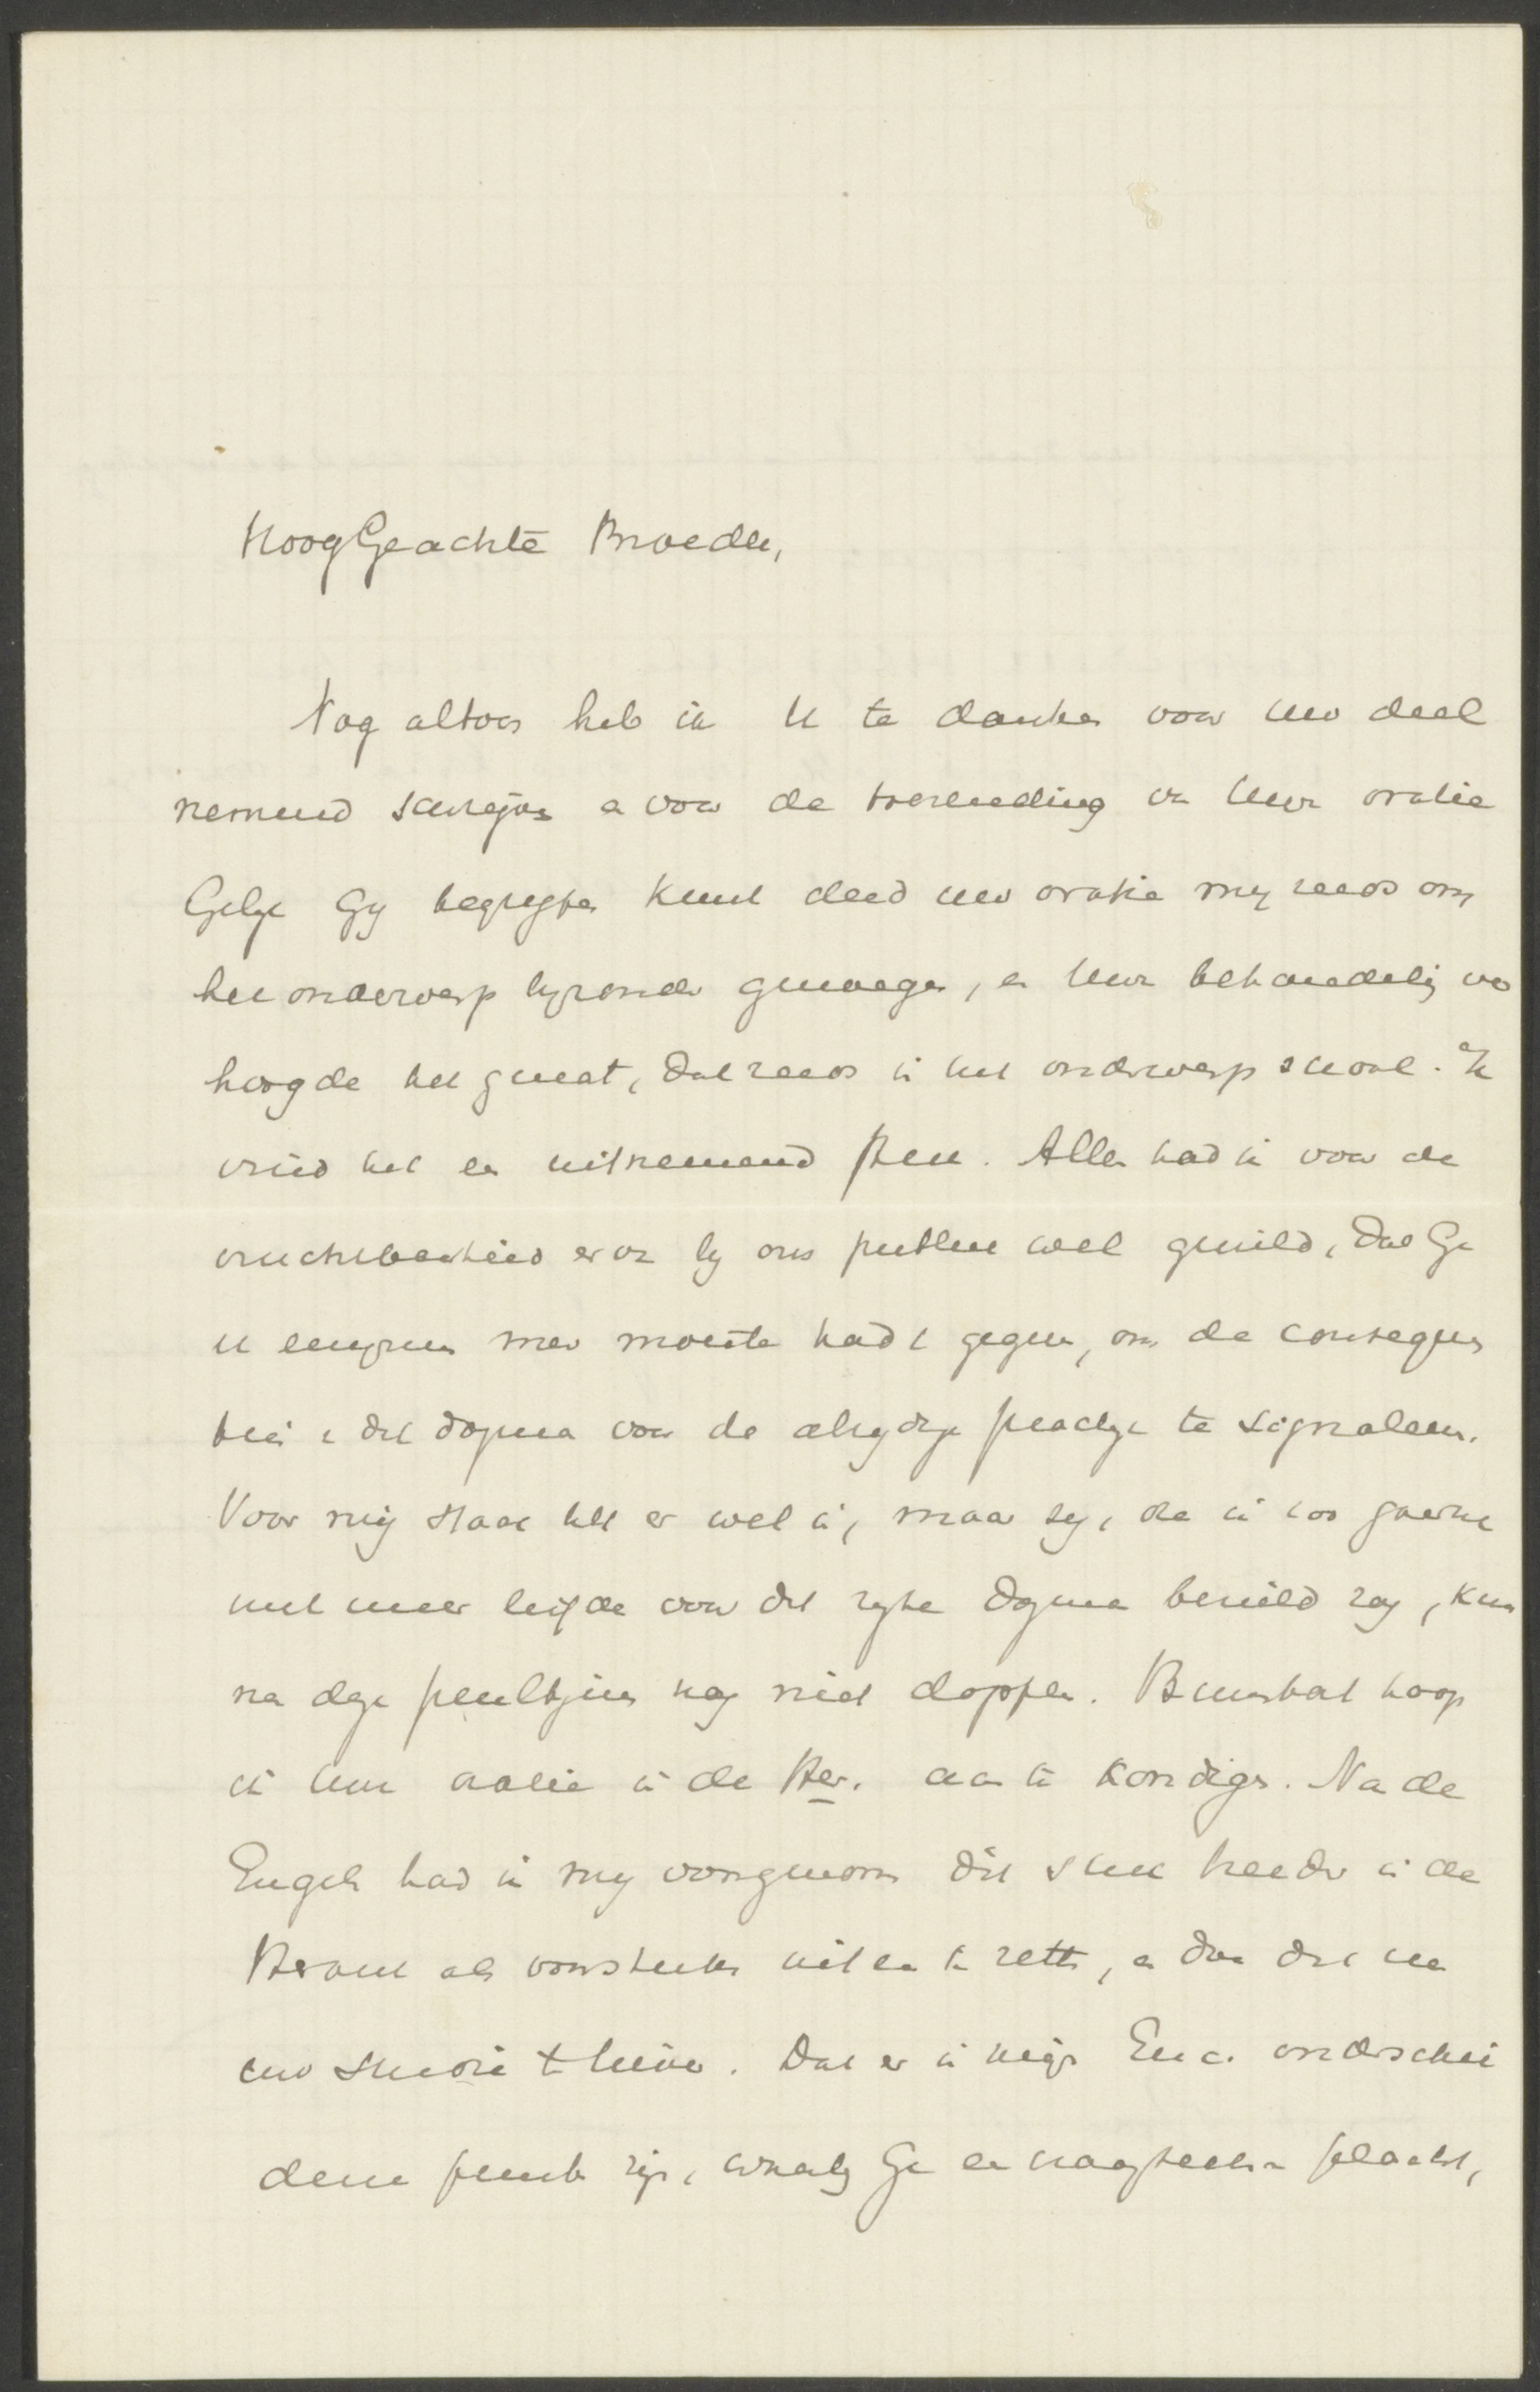 HoogGeachte Broeder,
Nog altoos heb ik U te danken voor uw deel
nemend schrijven en voor de toezending van Uwe oratie
Gelijk Gij begrijpen kunt deed uw oratie mij reeds om
het onderwerp bijzonder genoegen, en Uwe behandeling ver
hoogde het genot, dat reeds in het onderwerp school. Ik
vind het een uitnemend stuk. Alleen had ik voor de
vruchtbaarheid ervan bij ons publiek wel gewild, dat Ge
U eenigszins meer moeite hadt gegeven, om de consequen
tien van dit dogma voor de practijk te signaleeren.
Voor mij staat het er wel in, maar zij, die ik zoo gaarne
met meer liefde voor dit rijke dogma bezield zag, kun
nen deze peultjens nog niet doppen. Binnenkort hoop
ik Uwe oratie in de Her. aan te kondigen. Na de
Engelen had ik mij voorgenomen dit stuk breeder in de
Heraut als voorstudie uiteen te zetten, en dan dit in
uw studie te . Dat er in mijn Enc. onderschei
dene punten zijn, waarbij Ge een vraagteeken plaatst,